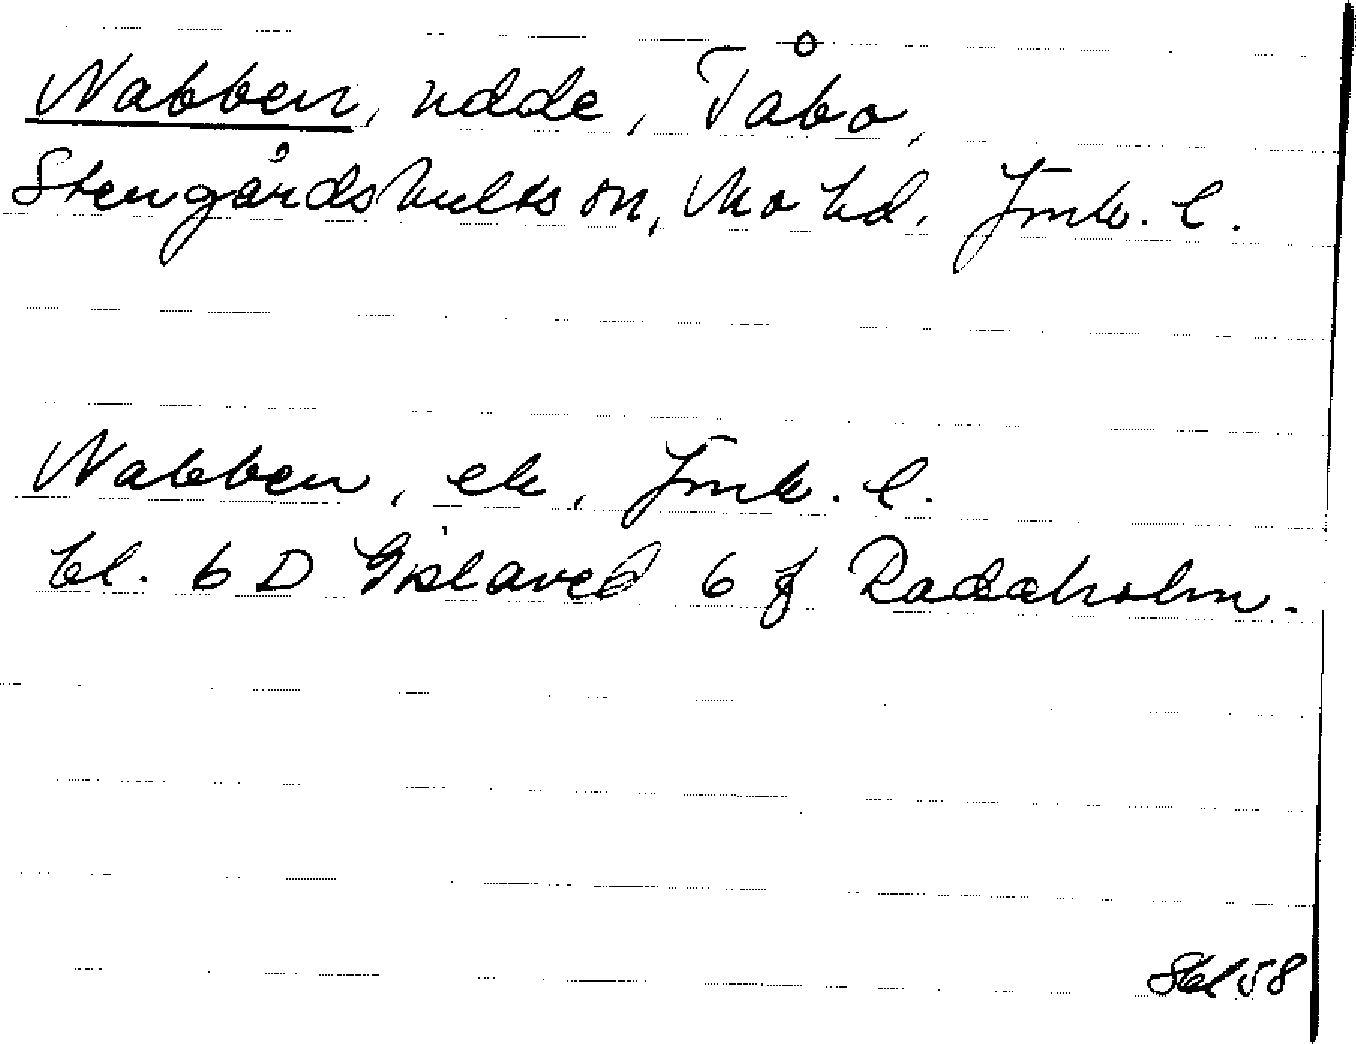 Nabben, udde, Tåbo,
Stengårdshults sn, Mo hd. Jmk. l.
Nabben, ek, Jmk. l.
bl. 6 D Gislaved 6 f Raddeholm.
Skl 58